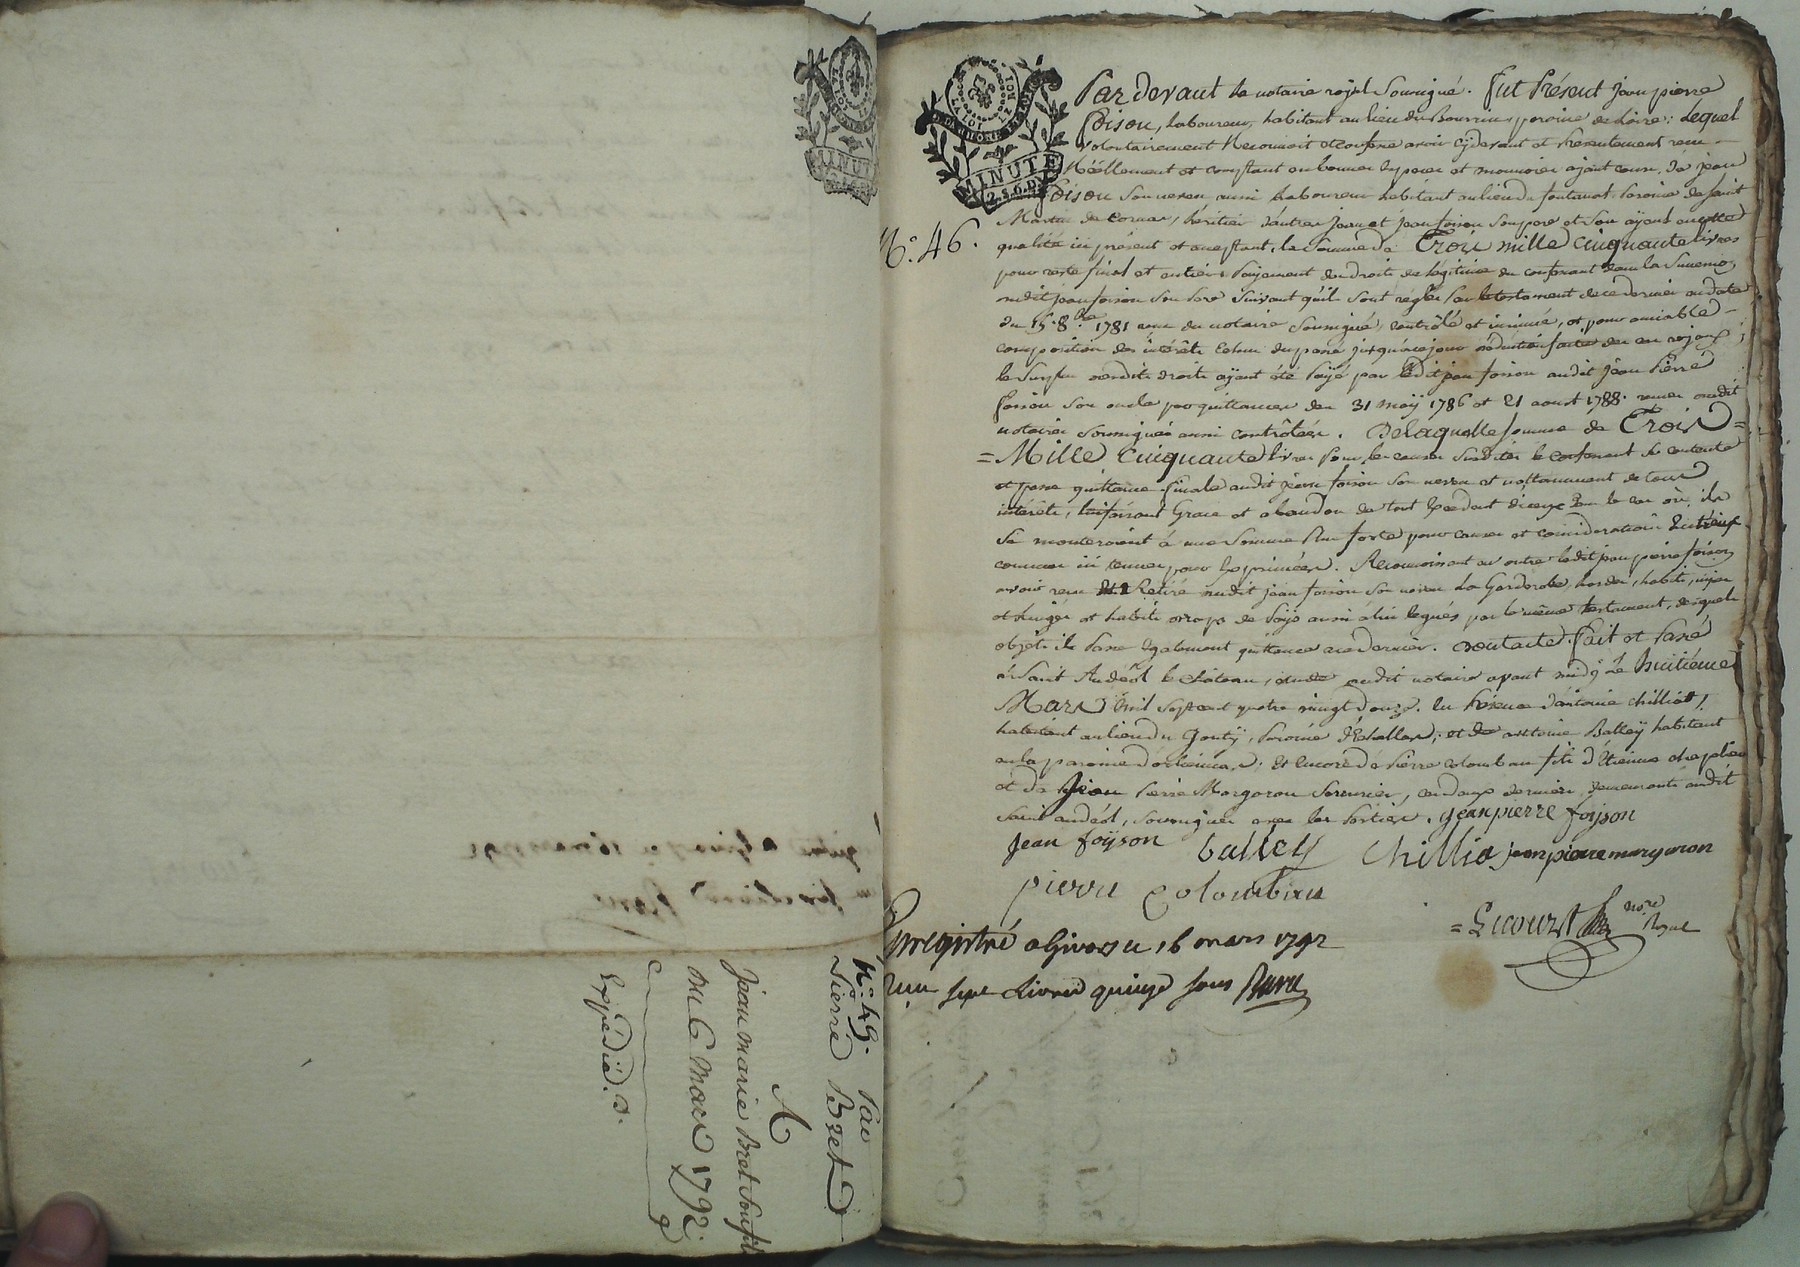 Par devant le notaire royal soussigné. fut Présent Jean pierre
foison, laboureur, habitant au lieu du paroisse de Loire; Lequel
volontairement Reconnoit et confesse avoir cydevant et présentement reçu
Réellement et comptant en bonnes espèces et monnoies ayant cours, de jean
foison son neveu aussi laboureur habitant au lieu du fontanat paroisse de saint
Martin de Cornas, heritier d'autre Jean et Jean foison son pere et son ayeul en cette
N.° 46.
qualité ici présent et acceptant, la somme de Trois mille cinquante livres
pour reste final et entier Payement des droits de légitime du confessant dans la
dudit jean foison son Pere suivant qu'ils sont réglés par le testament de ce dernier en date
du 15. 8.bre 1781 reçu du notaire soussigné, controlé et insinué, et pour amiable
composition des intérêts échus du passé jusqu'à ce jour
le surplus desdits droits ayant été Payé par ledit jean foison audit Jean Pierre
foison son oncle par quittances des 31 may 1786 et 21 aoust 1788. reçues dudit
notaire soussigné aussi controlées. De laquelle somme de Trois
= Mille Cinquante livres pour les causes susdites le confessant se contente
et passe quittance finale audit jean foison son neveu et nottamment de tous
intérêts, lui faisant Grace et abandon de tout Excédent d'iceux dans le cas où ils
se monteroient à une somme Plus forte pour causes et considérations
comme ici tenues pour Exprimées. Reconnoissant en outre ledit jean pierre foison
avoir reçu et Retiré dudit jean foison son neveu la Garderobe hardes, habits,
et linges et habits de aussi à lui legués par le même testament, desquels
objets il Passe également quittance à ce dernier. Dont acte. fait et Passé
à Saint Andéol le Château, étude dudit notaire avant midy Le huitieme
Mars mil sept cent quatre vingt douze. En Présence d'antoine chilliat,
habitant au lieu du Gouty, paroisse d'Echallas; et de antoine Balley habitant
en la paroisse et encore de Pierre colombau fils d'Etienne
et de Jean Pierre Margaron serrurier, ces deux derniers demeurants audit
saint andéol, soussignés avec les Parties. jean pierre foÿson
Jean foÿson balley Chillia jean pierre margaron
pierre Colombau
= Lecourt no.re Royal
Enregistré a Givors ce 16 mars 1792
Reçu sept Livres quinze sous
N.° 45. Par
Pierre Bret
A
Jean marie Bret
Du 6 Mars 1792.
Expédié.
LA LOI LE ROI
MINUTE
2.S.6.D.
MINUTE